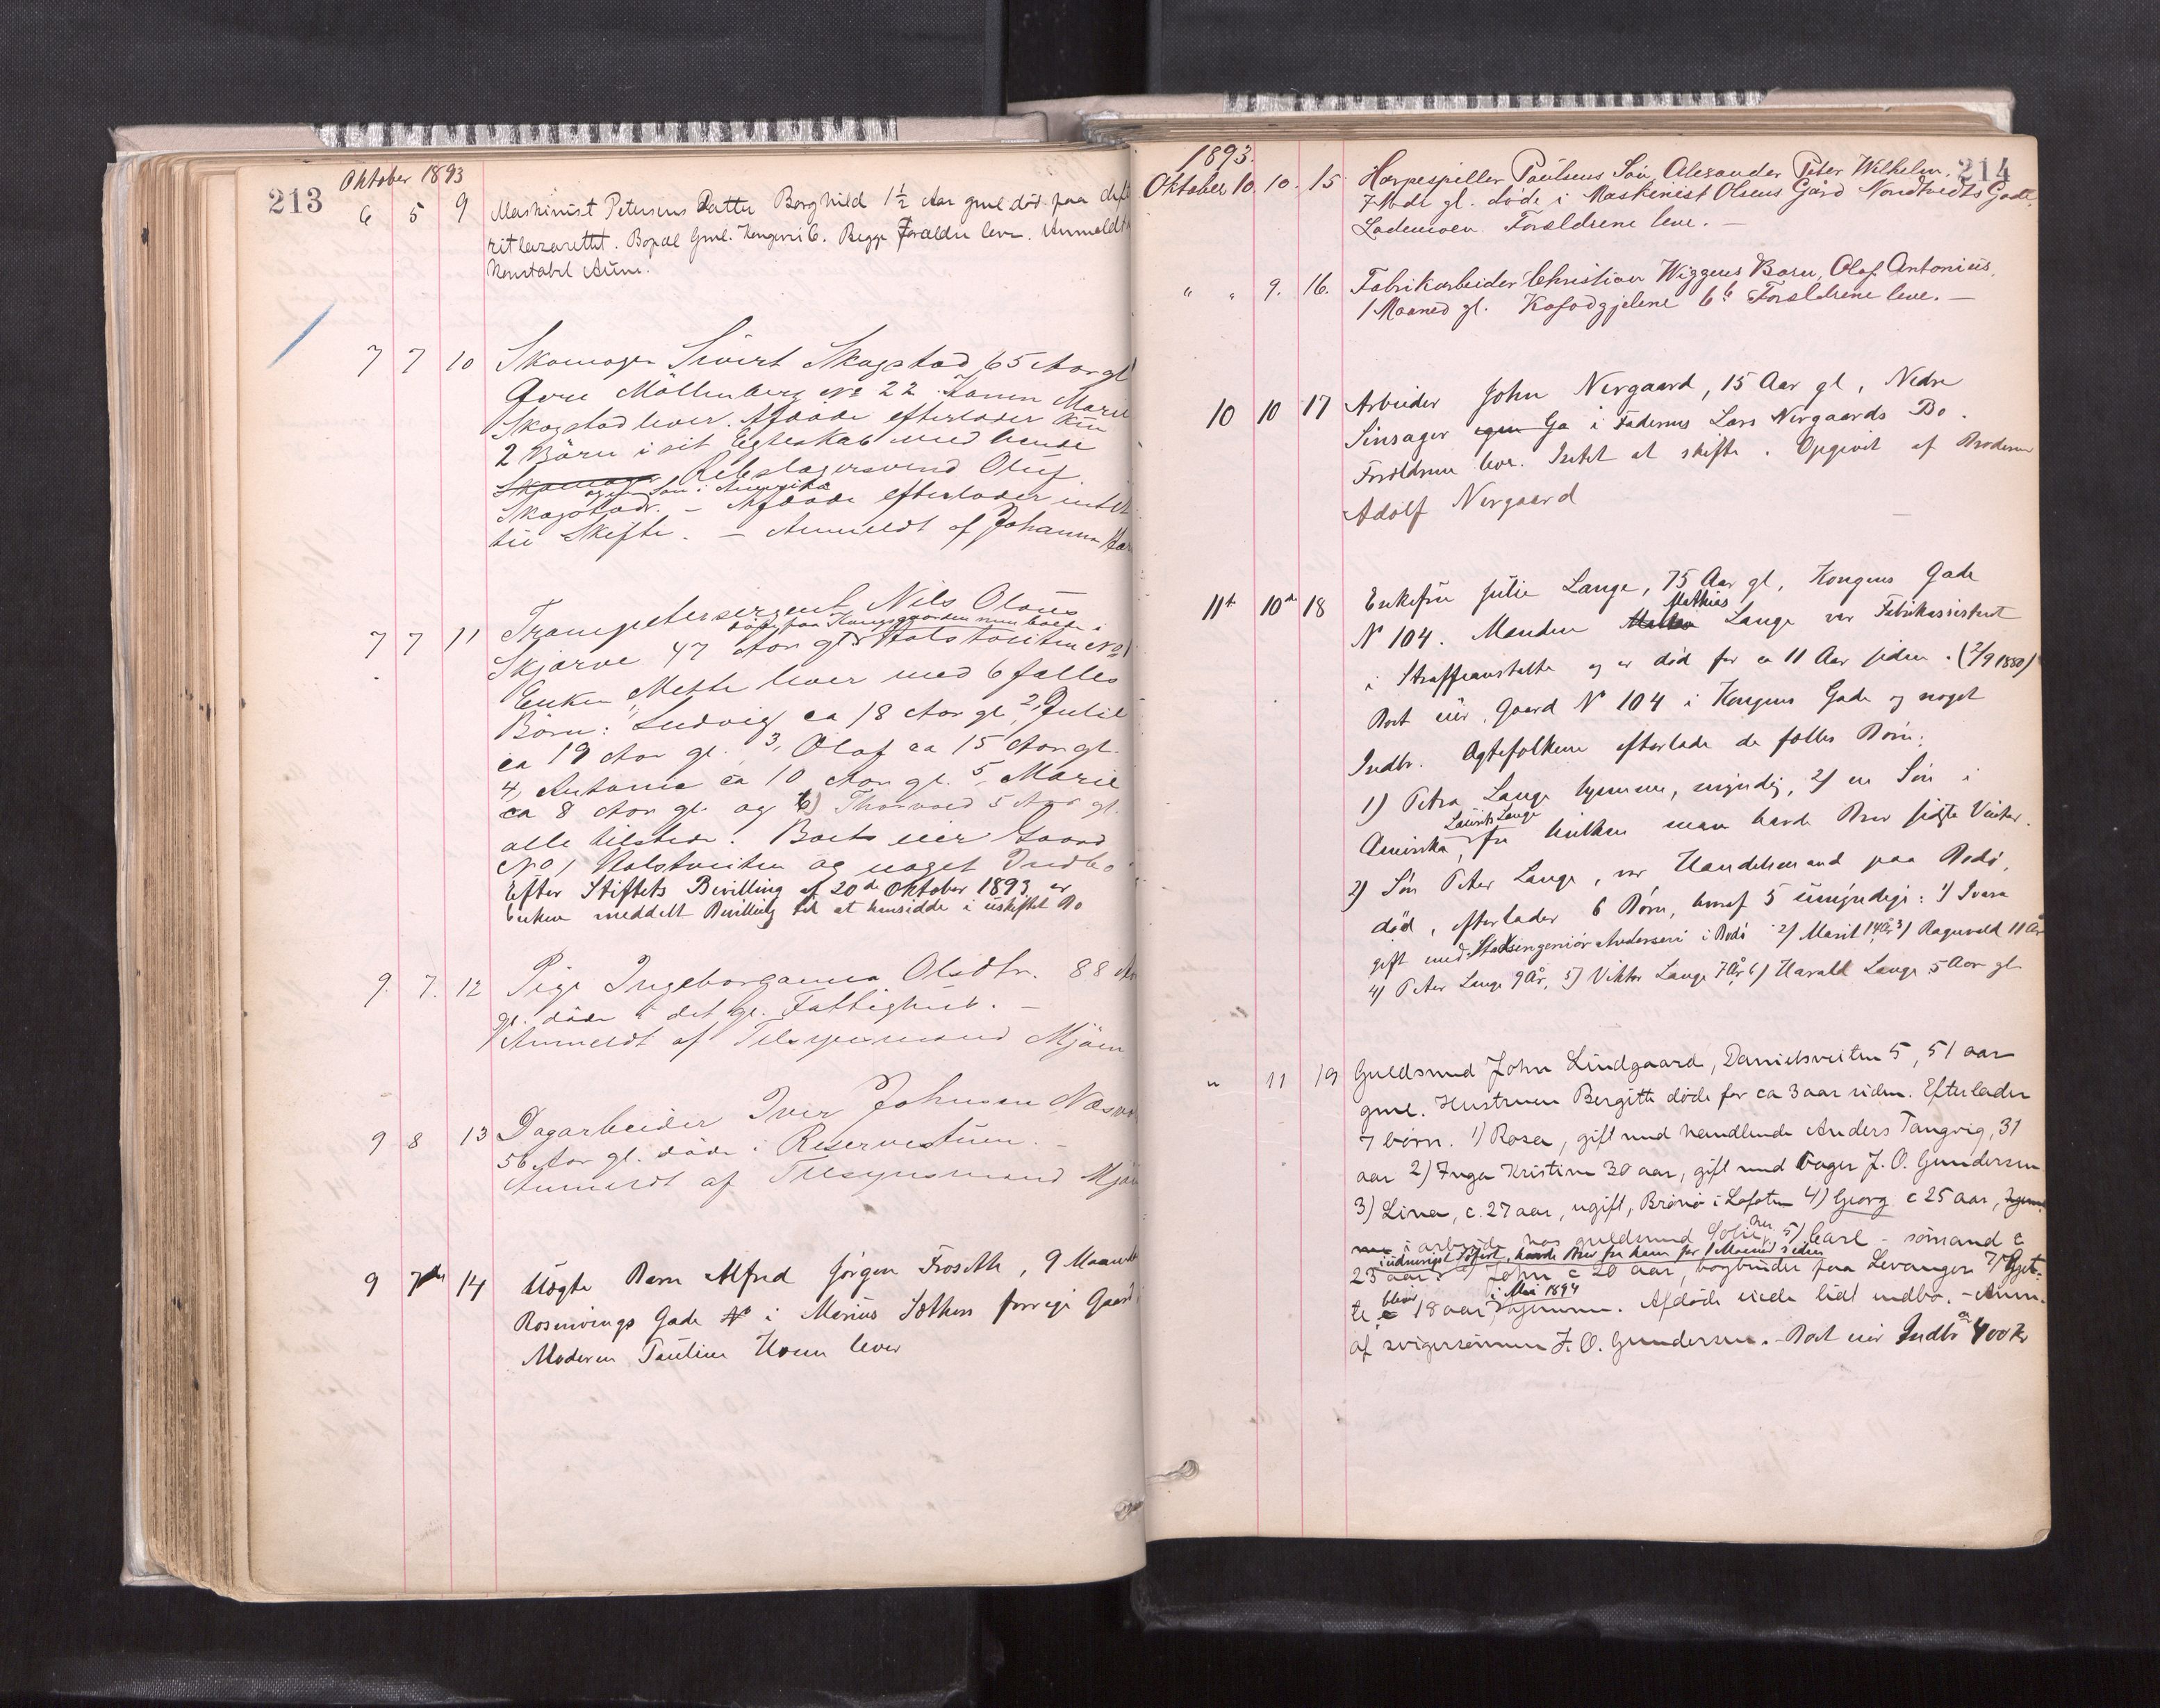 213
Oktober 1893
6 5 9 Maskinist Petersens Datter Borghild 1½ Aar gml død paa
ritlazarettet. Bopæl Gml. Kongevei 6. Begge Forældre leve. Anmeldt
Konstabel Aune.
7 7 10 Skomager Sivert Skogstad 65 Aar gl
Øvre Møllenberg No 22. Konen Marie
Skogstad lever. Afdøde efterlader kun
2 Børn i sit Egteskab med hende
Skomager Rebslagersvend Oluf
og en Søn i Amerika
Skogstad. – Afdøde efterlader intet
til Skifte. – Anmeldt af Johanna
7 7 11 Trompetersergent Nils Olaus
døde paa Kongsgaarden men boede i
Skjærve 47 Aar gl. Kalstveiten No 1
Enken Mette lever med 6 fælles
Børn: 1, Ludvig ca 18 Aar gl, 2, Julie
ca 19 Aar gl. 3, Olaf ca 15 Aar gl.
4, Antonie ca 10 Aar gl. 5, Marie
ca 8 Aar gl. og 6) Thorvald 5 Aar gl.
alle tilstede. Boets eier Gaard
No 1 Kalstveiten og noget Indbo.
Efter Stiftets Bevilling af 20de Oktober 1893 er
Enken meddelt Bevilling til at hensidde i uskiftet Bo
9. 7. 12 Pige Ingeborganna Olsdtr. 88
gl. døde i det gl. Fattighus. –
Anmeldt af Tilsynsmand Mjøen
9 8 13 Dagarbeider Iver Johnsen
56 Aar gl. døde i Reservestuen. –
Anmeldt af Tilsynsmand
9 7de 14 Uægte Barn Alfred Jörgen Froseth, 9
Rosenvings Gade No i Marius Sæthers forrige Gaard
Moderen Pauline Moum lever
214
1893.
Oktober 10. 10. 15. Harpespiller Paulsens Søn Alexander Peter Wilhelm.
7 Mdr gl. døde i Maskinist Olsens Gård Nordtvedts Gade,
Lademoen. Forældrene leve. –
" " 9. 16. Fabrikarbeider Christian Wiggens Barn, Olaf Antonius,
1 Maaned gl. Kafodgjelene 6b Forældrene leve. –
10 10 17 Arbeider John Nergaard, 15 Aar gl, Nedre
Sinsager egen Ga i Faderens Lars Nergaards Bo.
Forældrene leve. Intet at skifte. Opgivet af Broderen
Adolf Nergaard
11te 10de 18 Enkefru Julie Lange, 75 Aar gl, Kongens Gade
Mathias
No 104. Manden Lange var Fabrikassistent
i Straffeanstalten og er død for ca 11 Aar siden. (2/9 1880)
Boet eier Gaard No 104 i Kongens Gade og noget
Indbo. Ægtefolkene efterlade de fælles Børn:
1) Petra Lange hjemme, myndig, 2) en Søn i
Laurits Lange
Amerika, fra hvilken man havde Brev sidste Vinter.
2) Søn Peter Lange, var Handelsmand paa Bodø,
død, efterlader 6 Børn, hvoraf 5 umyndige: 1) Ivara
gift med Stadsingeniør Andersen i Bodø 2) Marit 14 År 3) Ragnvald 11 År
4) Peter Lange 9 År, 5) Viktor Lange 7 År 6) Harald Lange 5 Aar gl
" 11 19 Guldsmed John Lindgaard, Danielsveiten 5, 51 aar
gml. Hustruen Bergitte døde for ca 3 aar siden. Efterlader
7 børn. 1) Rosa, gift med handlende Anders Tangvig, 31
aar 2) Inga Kristine 30 aar, gift med Bager J. O. Gundersen
3) Lina, c. 27 aar, ugift, Brönö i Lofoten 4) Georg c 25 aar,
i arbeide hos guldsmed 5) Carl – sömand c
iudenrigst Söfart, havde Brev fra ham for 1 Maaned siden
23 aar. 6) John c 20 aar, bogbinder paa Levanger 7) Gjet=
bliver i Mai 1894
te c 18 aar, hjemme. Afdøde eiede lidt indbo. – Anm.
af svigersønnen J. O. Gundersen. – Boet eier Indbo ca 400 Kr